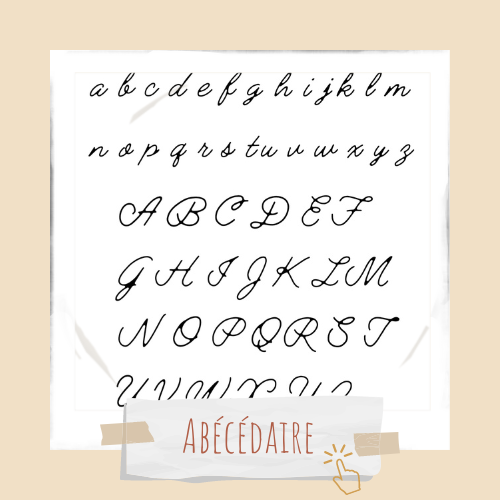 a b c d e f g h i j k l m
n o p q r s t u v w x y z
A B C D E F
G H I J K L M
N O P Q R S T
U V W X Y Z
ABÉCÉDAIRE